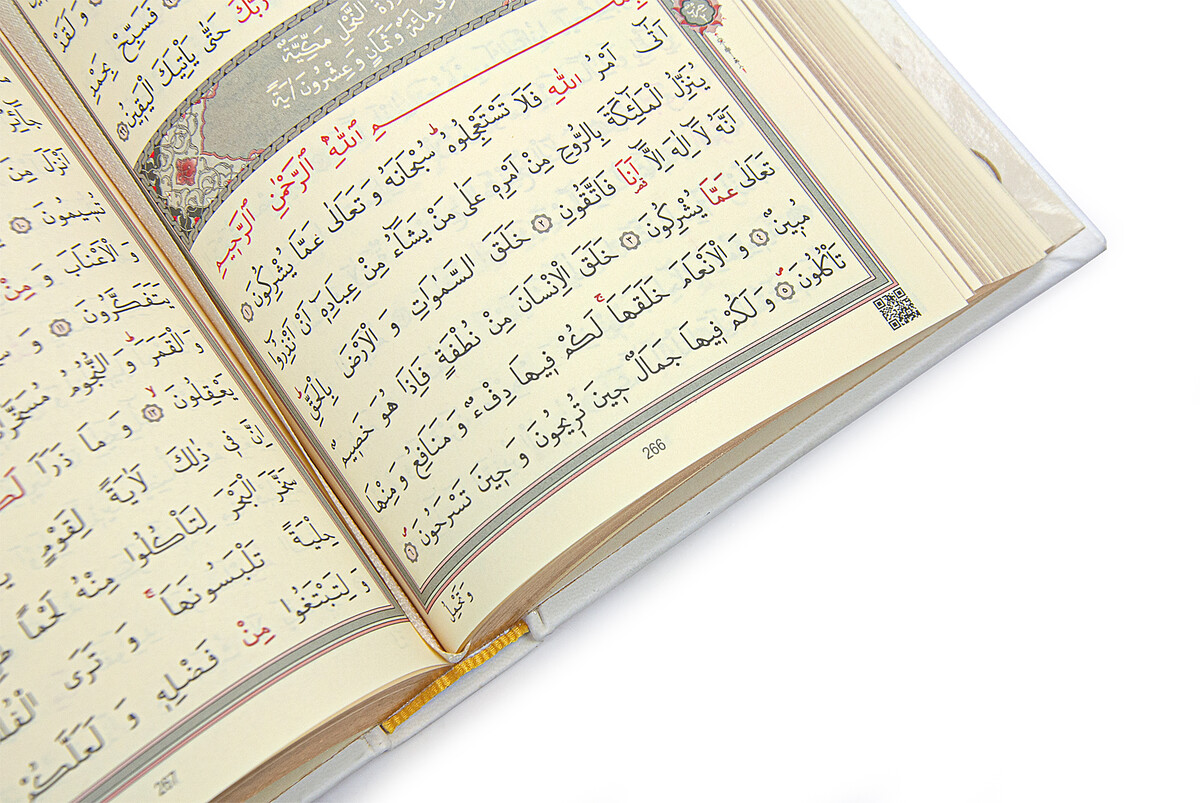 وَ لَقَدْ
فَسَبِّحْ بِحَمْدِ
رَبَّكَ حَتّٰى يَأْتِيَكَ الْيَق۪ينُ ﴿٩٩﴾
سُورَةُ النَّحْلِ مَكِّيَّةٌ
مِائَةٌ وَ ثَمَانٍ وَ عِشْرُونَ اٰيَةً
بِسْمِ اللّٰهِ الرَّحْمٰنِ الرَّح۪يمِ
اَتٰٓى اَمْرُ اللّٰهِ فَلَا تَسْتَعْجِلُوهُ سُبْحَانَهُ وَ تَعَالٰى عَمَّا يُشْرِكُونَ ﴿١﴾
يُنَزِّلُ الْمَلٰٓئِكَةَ بِالرُّوحِ مِنْ اَمْرِه۪ عَلٰى مَنْ يَشَٓاءُ مِنْ عِبَادِه۪ٓ اَنْ اَنْذِرُٓوا
اَنَّهُ لَٓا اِلٰهَ اِلَّٓا اَنَا۬ فَاتَّقُونِ ﴿٢﴾ خَلَقَ السَّمٰوَاتِ وَ الْاَرْضَ بِالْحَقِّ
تَعَالٰى عَمَّا يُشْرِكُونَ ﴿٣﴾ خَلَقَ الْاِنْسَانَ مِنْ نُطْفَةٍ فَاِذَا هُوَ خَص۪يمٌ
مُب۪ينٌ ﴿٤﴾ وَ الْاَنْعَامَ خَلَقَهَا لَكُمْ ف۪يهَا دِفْءٌ وَ مَنَافِعُ وَ مِنْهَا
تَأْكُلُونَ ﴿٥﴾ وَ لَكُمْ ف۪يهَا جَمَالٌ ح۪ينَ تُر۪يحُونَ وَ ح۪ينَ تَسْرَحُونَ ﴿٦﴾
وَ تَحْمِلُ
266
اَنْزَلَ مِنَ
تُس۪يمُونَ ﴿١٠﴾
وَ الْاَعْنَابَ وَ مِنْ
يَتَفَكَّرُونَ ﴿١١﴾ وَ
وَ الْقَمَرَ وَ النُّجُومُ مُسَخَّرَاتٌ
يَعْقِلُونَ ﴿١٢﴾ وَ مَا ذَرَاَ لَكُمْ
اِنَّ ف۪ي ذٰلِكَ لَاٰيَةً لِقَوْمٍ
سَخَّرَ الْبَحْرَ لِتَأْكُلُوا مِنْهُ لَحْمًا
حِلْيَةً تَلْبَسُونَهَا وَ تَرَى الْفُلْكَ
وَ لِتَبْتَغُوا مِنْ فَضْلِه۪ وَ لَعَلَّكُمْ
267